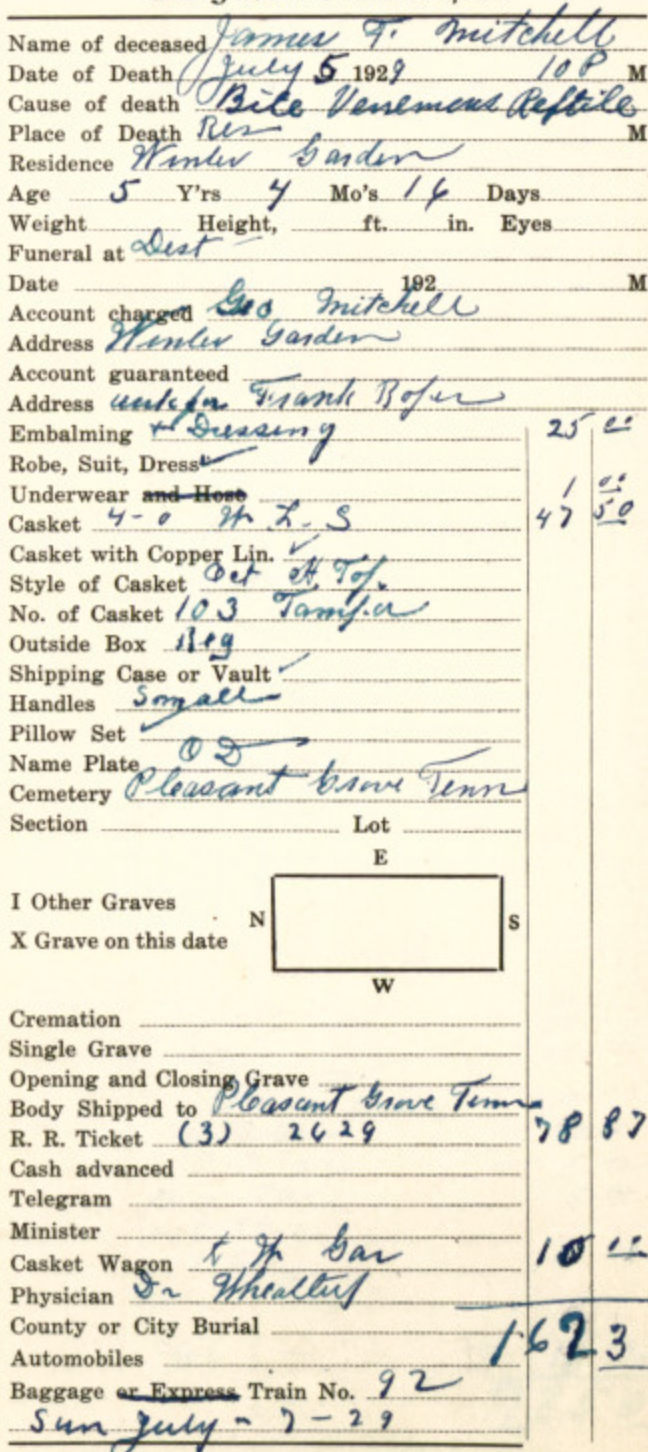 Name of deceased James F. Mitchell
Date of Death July 5 1929 10 P M
Cause of death Bite Venemous Reftile
Place of Death Res M
Residence Winter Garden
Age 5 Y'rs 4 Mo's 16 Days
Weight Height, ft. in. Eyes
Funeral at Dest
Date 192 M
Account charged Geo Mitchell
Address Winter Garden
Account guaranteed
Address Frank Roper
Embalming + Dressing 25 00
Robe, Suit, Dress ✓
Underwear and Hose 1 00
Casket 4-0 W. L. S 47 50
Casket with Copper Lin. ✓
Style of Casket Oct H. Top.
No. of Casket 103 Tampa
Outside Box Reg
Shipping Case or Vault ✓
Handles Small
Pillow Set ✓
Name Plate O D
Cemetery Pleasant Grove Tenn
Section Lot
E
I Other Graves
N S
X Grave on this date
W
Cremation
Single Grave
Opening and Closing Grave
Body Shipped to Pleasant Grove Tenn
R. R. Ticket (3) 2629 78 87
Cash advanced
Telegram
Minister
Casket Wagon W Gar 10 00
Physician Dr
County or City Burial 162 3
Automobiles
Baggage or Express Train No. 92
Sun July - 7 - 29